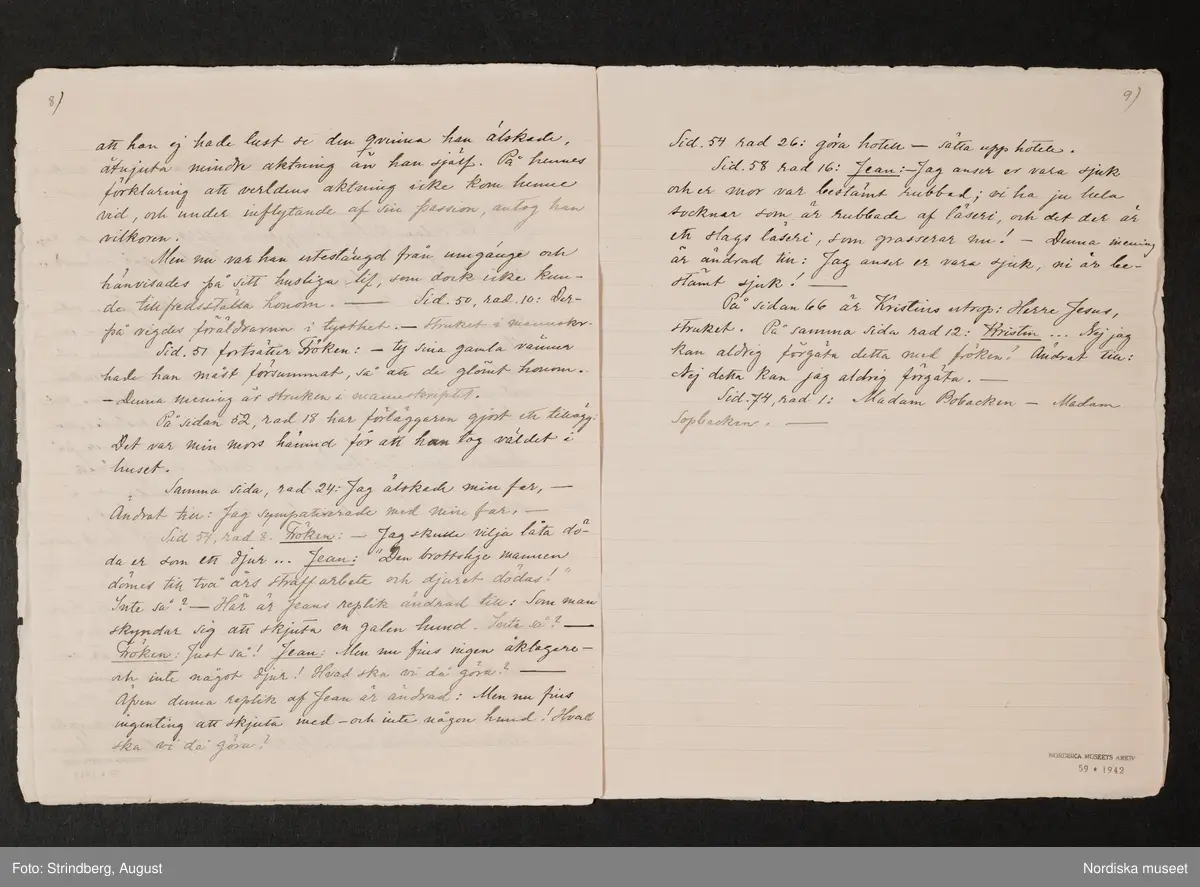 8)
att han ej hade lust se den qvinna han älskade,
åtnjuta mindre aktning än han sjelf. På hennes
förklaring att verldens aktning icke kom henne
vid, och under inflytande af sin passion, antog han
vilkoren.
Men nu var han utestängd från umgänge och
hänvisades på sitt husliga lif, som dock icke kun-
de tillfredsställa honom. — Sid. 50, rad. 10: Der-
på vigdes föräldrarna i tysthet. — struket i manuskr.
Sid. 51 fortsätter Fröken: — ty sina gamla vänner
hade han måst försummat, så att de glömt honom. —
— Denna mening är struken i manuskriptet.
På sidan 52, rad 18 har förläggaren gjort ett tillägg:
Det var min mors hämnd för att han tog väldet i
huset.
Samma sida, rad 24: Jag älskade min far, —
Ändrat till: Jag sympatiserade med min far, —
Sid 54, rad 8. Fröken: — Jag skulle vilja låta dö-
da er som ett djur ... Jean: "Den brottslige mannen
dömes till två års straffarbete och djuret dödas!"
Inte så? — Här är Jeans replik ändrad till: Som man
skyndar sig att skjuta en galen hund. Inte så? —
Fröken: Just så! Jean: Men nu fins ingen åklagare —
och inte något djur! Hvad ska vi då göra? —
Äfven denna replik af Jean är ändrad: Men nu fins
ingenting att skjuta med — och inte någon hund! Hvad
ska vi då göra?
9)
Sid. 54 rad 26: göra hotell — sätta upp hotell.
Sid. 58 rad 16: Jean: — Jag anser er vara sjuk
och er mor var bestämt rubbad; vi ha ju hela
socknar som är rubbade af läseri, och det der är
ett slags läseri, som grasserar nu! — Denna mening
är ändrad till: Jag anser er vara sjuk, ni är be-
stämt sjuk! —
På sidan 66 är Kristins utrop: Herre Jesus,
struket. På samma sida rad 12: Kristin ... Nej jag
kan aldrig förgäta detta med fröken! Ändrat till:
Nej detta kan jag aldrig förgäta. —
Sid. 74, rad 1: Madam Bobacken — Madam
Sopbacken. —
NORDISKA MUSEETS ARKIV
59 * 1942
Foto: Strindberg, August
Nordiska museet